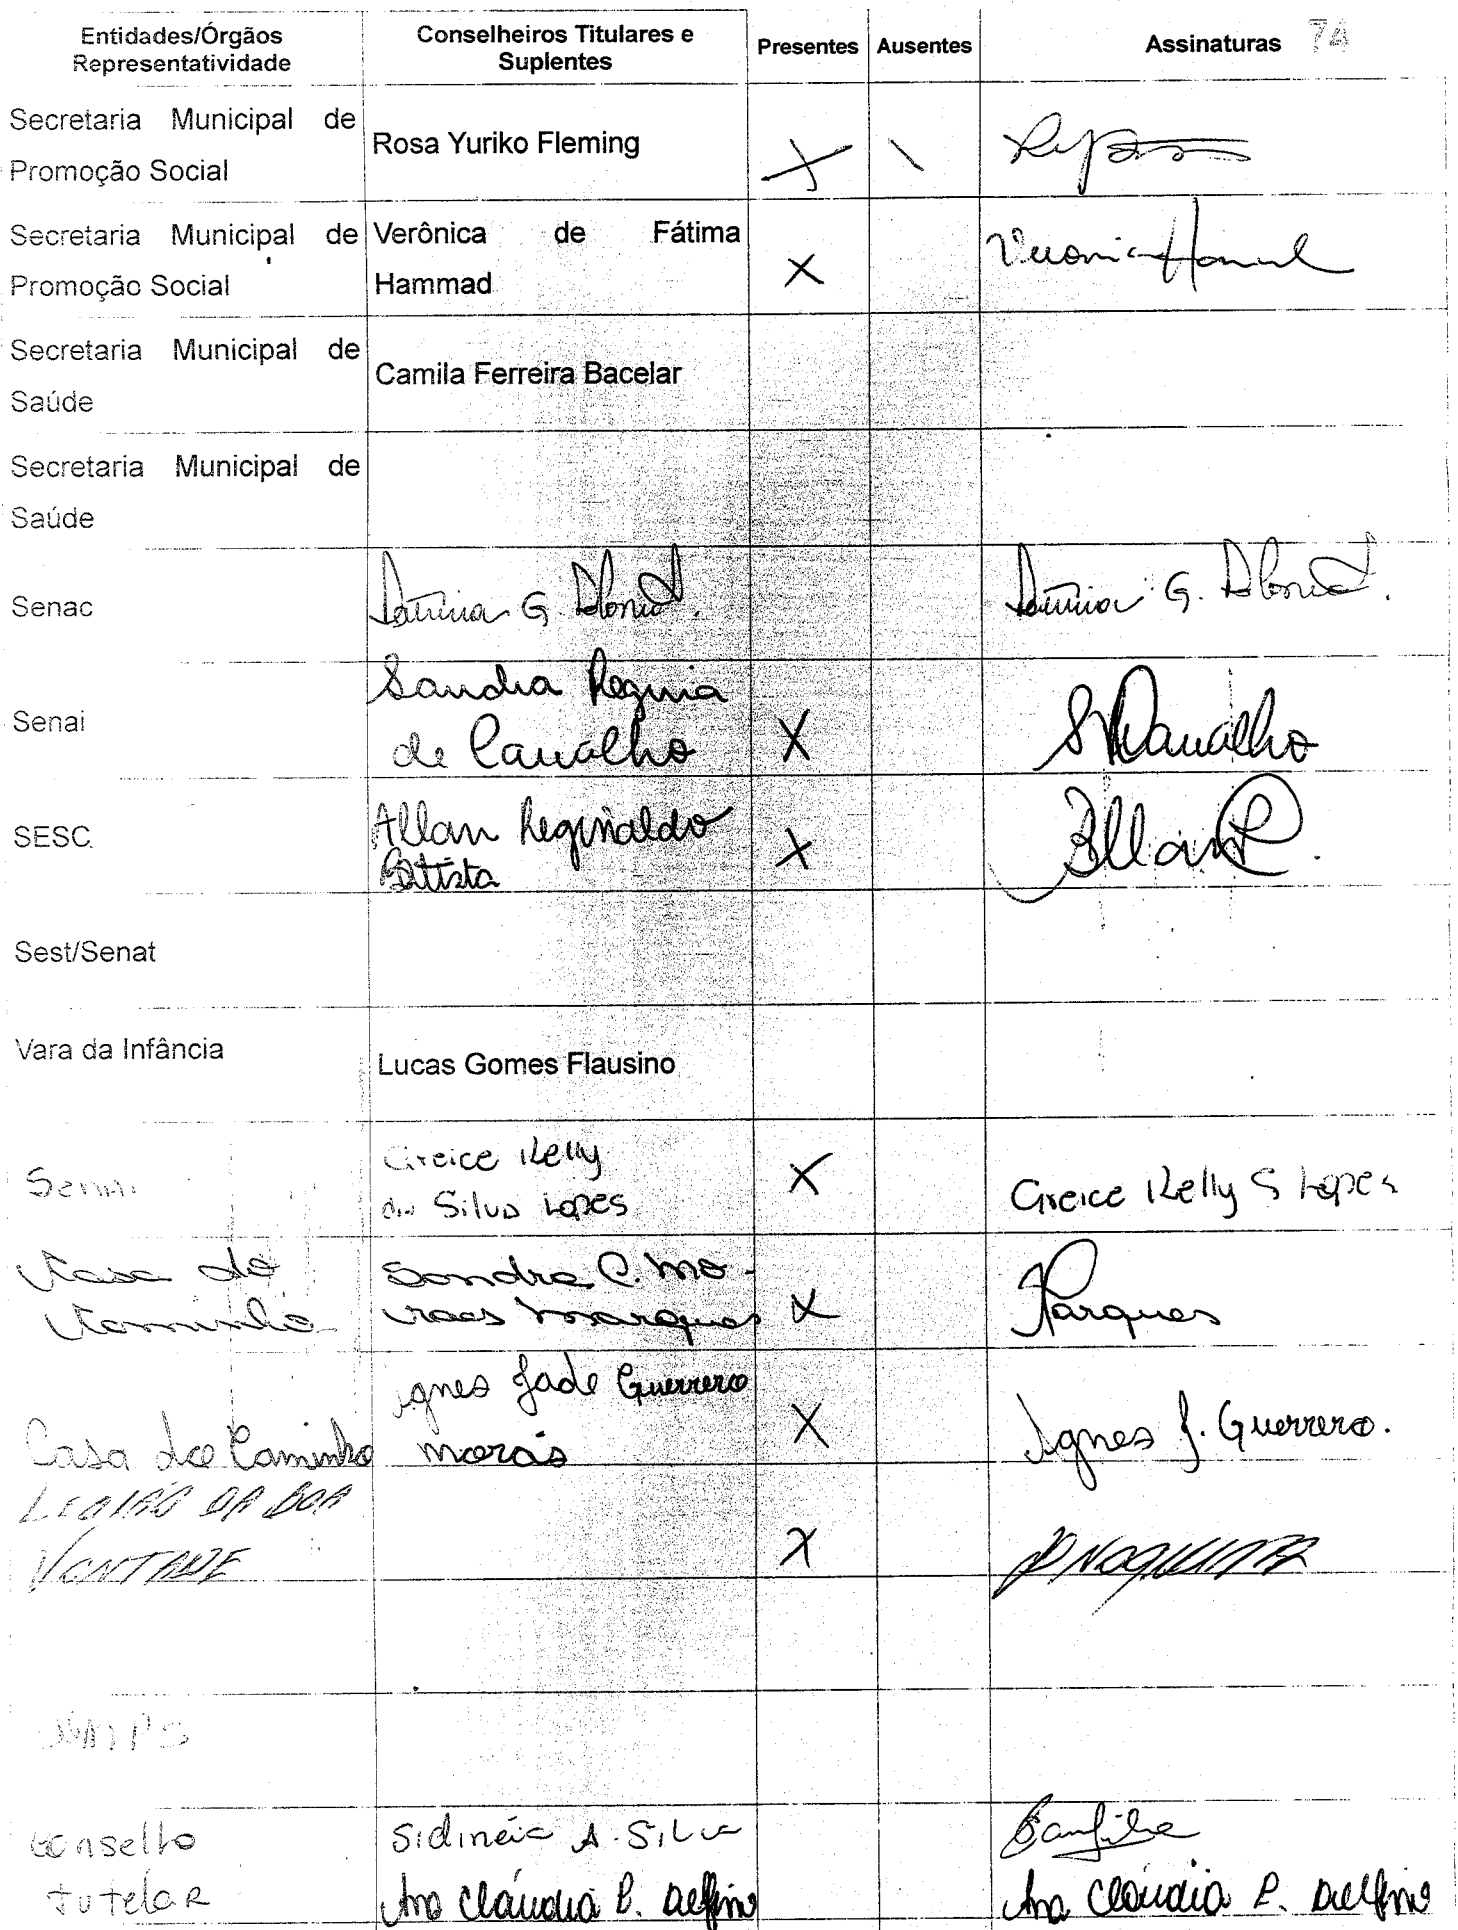 Entidades/Órgãos Representatividade
Conselheiros Titulares e Suplentes
Presentes
Ausentes
Assinaturas
74
Secretaria Municipal de
Promoção Social
Rosa Yuriko Fleming
X
\
Secretaria Municipal de
Promoção Social
Verônica de Fátima
Hammad
X
Secretaria Municipal de
Saúde
Camila Ferreira Bacelar
Secretaria Municipal de
Saúde
Senac
G.
G.
Senai
Sandra Regina
de Carvalho
X
SESC
Allan Reginaldo
Batista
X
Sest/Senat
Vara da Infância
Lucas Gomes Flausino
Greice Kelly
da Silva Lopes
X
Greice Kelly S Lopes
Casa do
Caminho
Sandra C. Mo-
raes Marques
X
Marques
Casa do Caminho
Agnes Jade Guerrero
Morais
X
Agnes J. Guerrero.
LEGIÃO DA BOA
VONTADE
X
Conselho
Tutelar
Sidinéia A. Silva
Ana Cláudia P. Delfino
Ana Cláudia P. Delfino